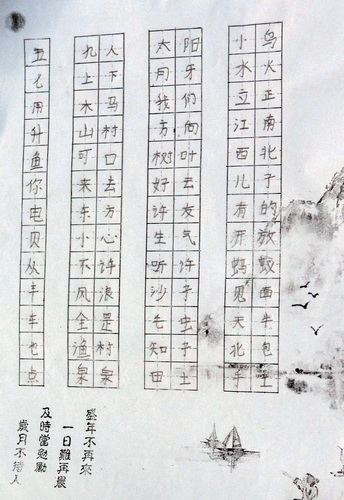 五 九人 太阳 小鸟
么 上下 月牙 水火
用 木马 我们 立正
升 山村 方向 江南
鱼 可口 树叶 西北
你 来去 好云 儿子
电 东方 许友 有的
贝 小心 生气 开放
从 不许 听许 蚂蚁
丰 风浪 沙子 见面
车 全是 毛虫 天牛
也 渔村 知子 北包
点 泉泉 田土
盛年不再來
一日難再晨
及時當勉勵
歲月不待人